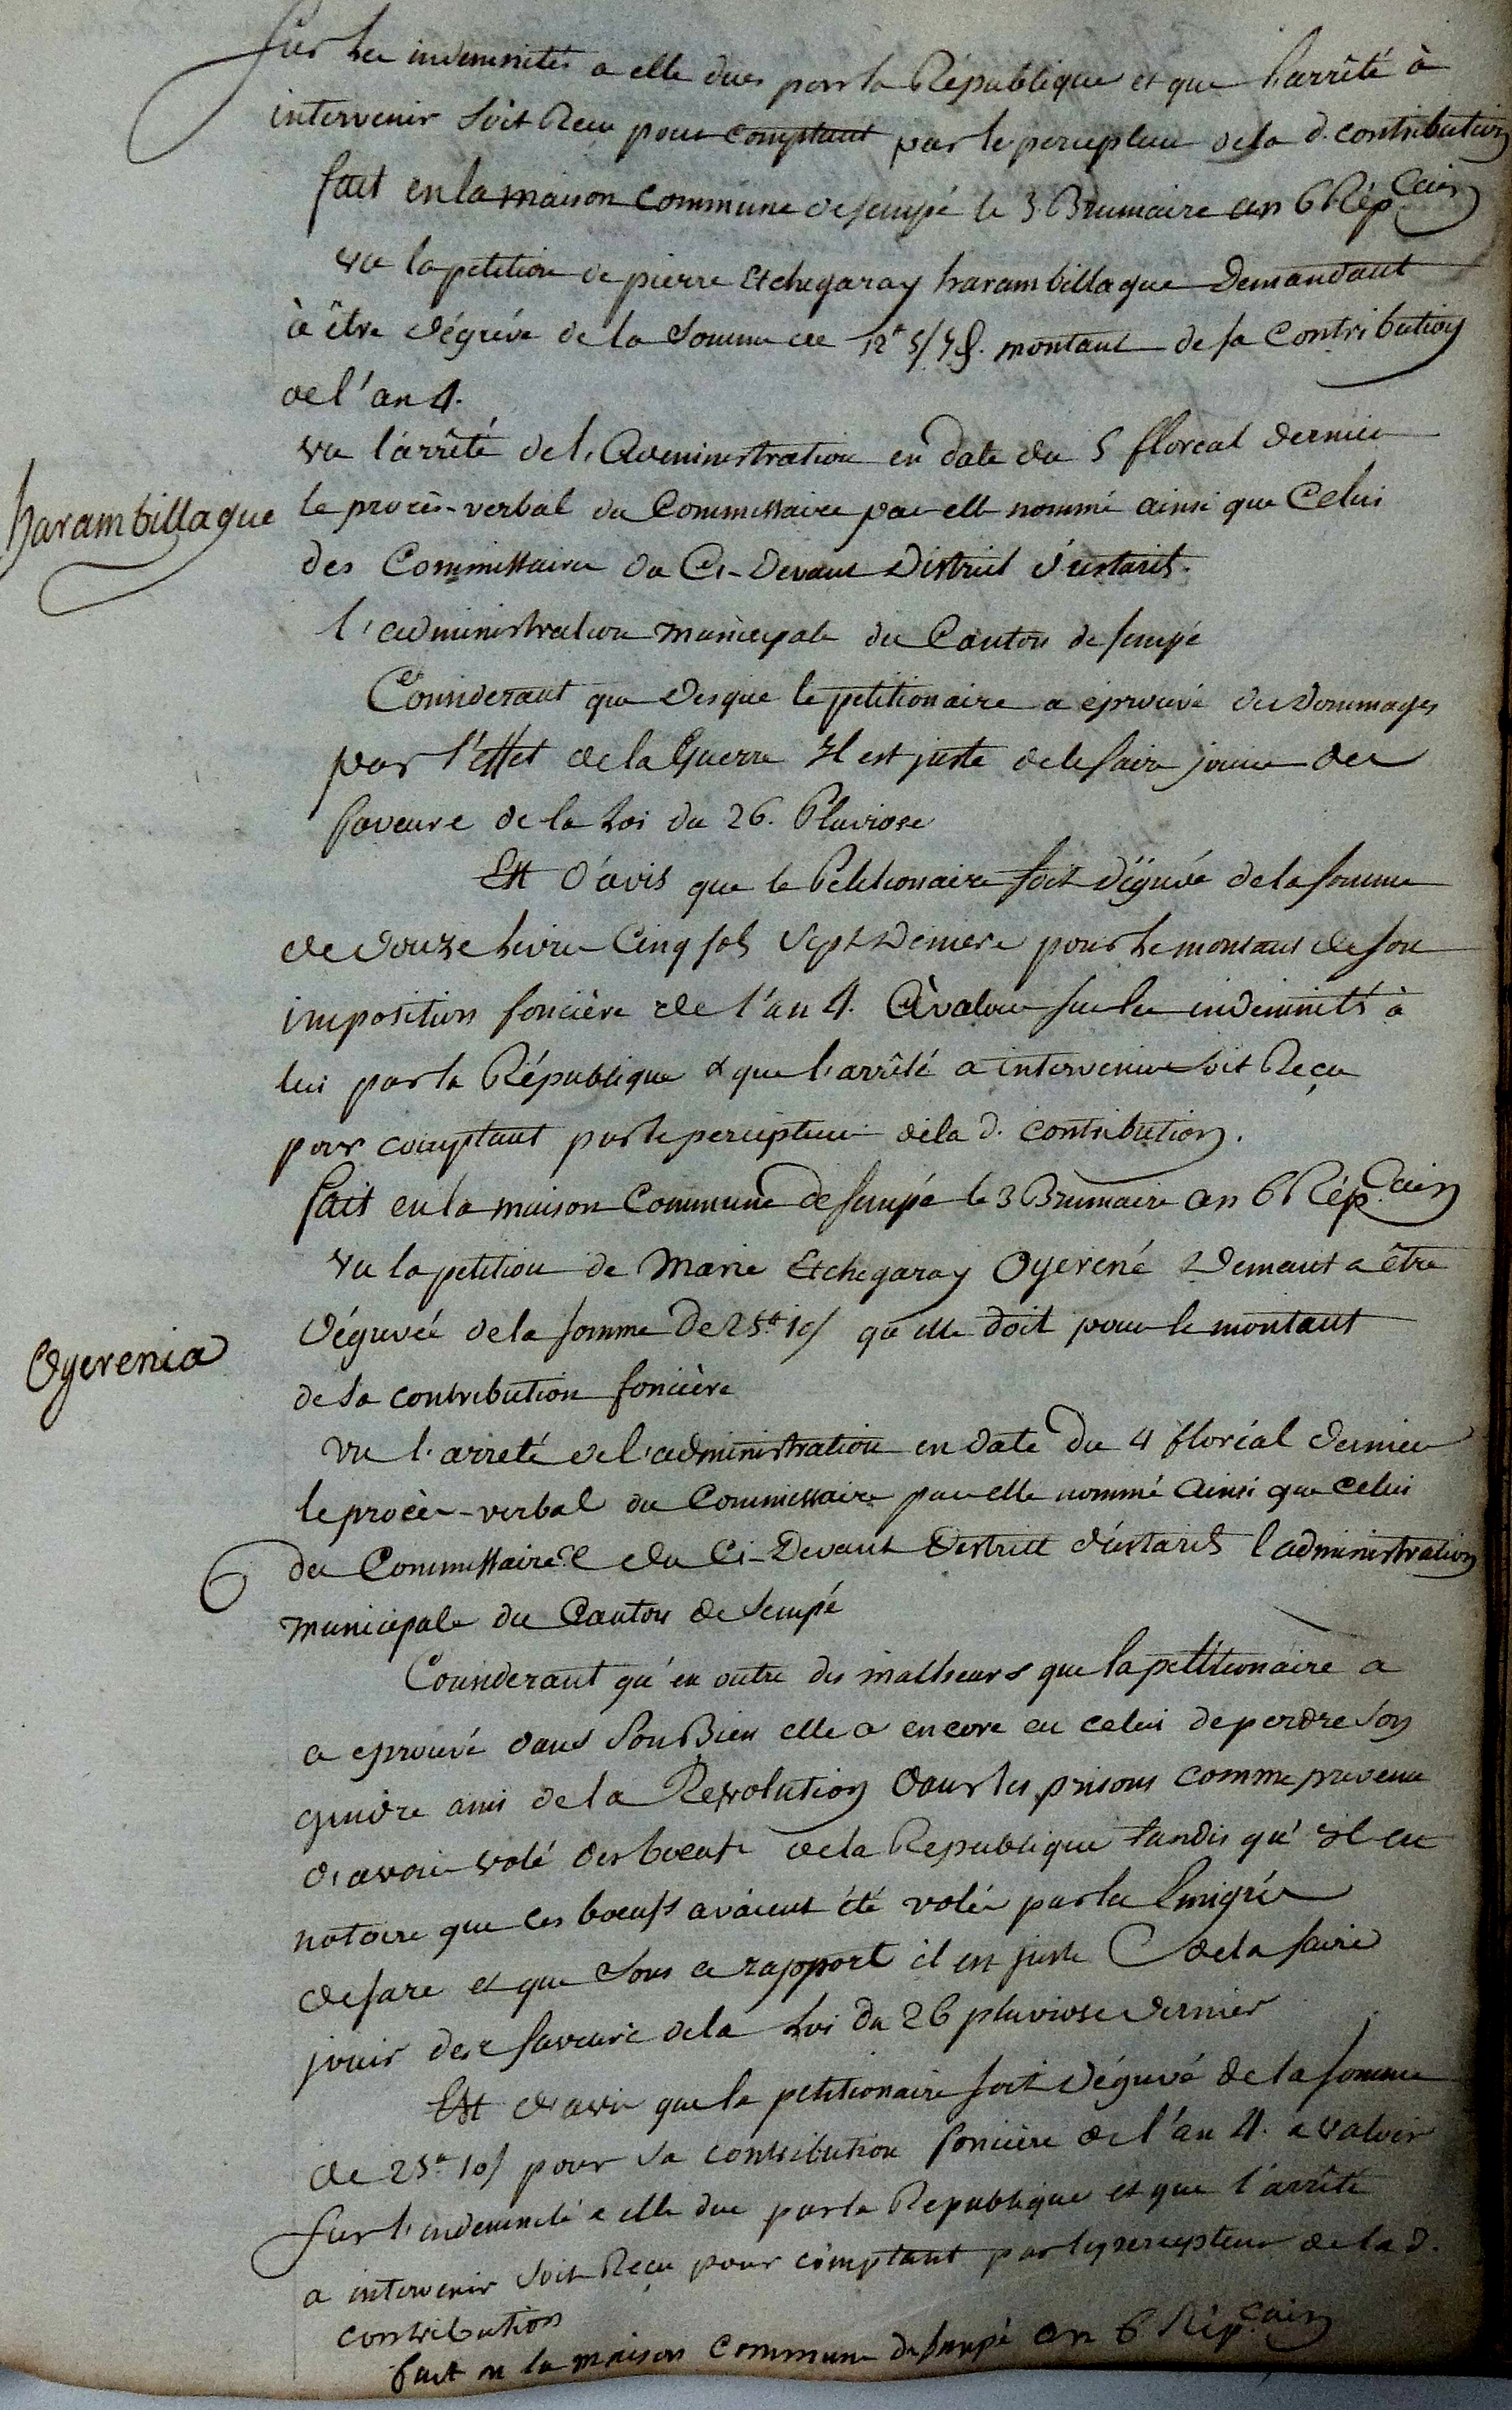 sur les indemnités a elle dues par la République et que l'arrêté à
intervenir soit Reçu pour comptant par le percepteur de la d. contribution
fait en la maison Commune de Sempé le 3 Brumaire an 6 Rép.cain
vu la petition de pierre Etchegaray harambillague Demandant
à être dégrévé de la Somme de 12# 5/ 7d. montant de sa Contribution
de l'an 4.
vu l'arrêté de l'Administration en date du 5 floreal dernier
harambillague
le procès-verbal du Commissaire par elle nommé ainsi que Celui
des Commissaires du Ci-Devant District d'ustarits.
l'administration municipale du Canton de Sempé
Considerant que des que le petitionaire a éprouvé des Dommages
par l'effet de la Guerre Il est juste de le faire jouir des
faveurs de la Loi du 26. Pluviose
Est d'avis que le Petitionaire soit dégrévé de la somme
de douze Livres Cinq sols Sept Deniers pour le montant de son
imposition foncière de l'an 4. à valoir sur les indemnités à
lui par la République & que l'arrêté a intervenir soit Reçu
pour comptant par le percepteur de la d. contribution.
fait en la maison Commune de Sempé le 3 Brumaire an 6 Rép.cain
vu la petition de Marie Etchegaray Oyerené Demant a être
dégrévée de la somme De 25# 10/ qu'elle doit pour le montant
Oyerenia
de sa contribution foncière
vu l'arreté de l'administration en date du 4 floréal dernier
le procès-verbal du Commissaire par elle nommé Ainsi que celui
6 des Commissaires du Ci-Devant District d'ustarits l'administration
municipale du Canton de Sempé
Considerant qu'en outre des malheurs que la petitionaire a
a eprouvé dans Son Bien elle a encore eu celui de perdre son
gendre ami de la Revolution dans les prisons comme prevenu
d'avoir volé des boeufs de la Republique tandis qu'il est
notoire que ces boeufs avaient été volés par les Emigrés
de sare et que sous ce rapport il est juste de la faire
jouir des faveurs de la Loi du 26 pluviose dernier
Est d'avis que la petitionaire soit dégrévé de la somme
de 25# 10/ pour sa contribution foncière de l'an 4. a valoir
sur l'indemnité a elle due par la Republique et que l'arrêté
a intervenir soit Reçu pour comptant par le percepteur de la d.
contribution
fait en la maison commune de Sempé an 6 Rép.cain